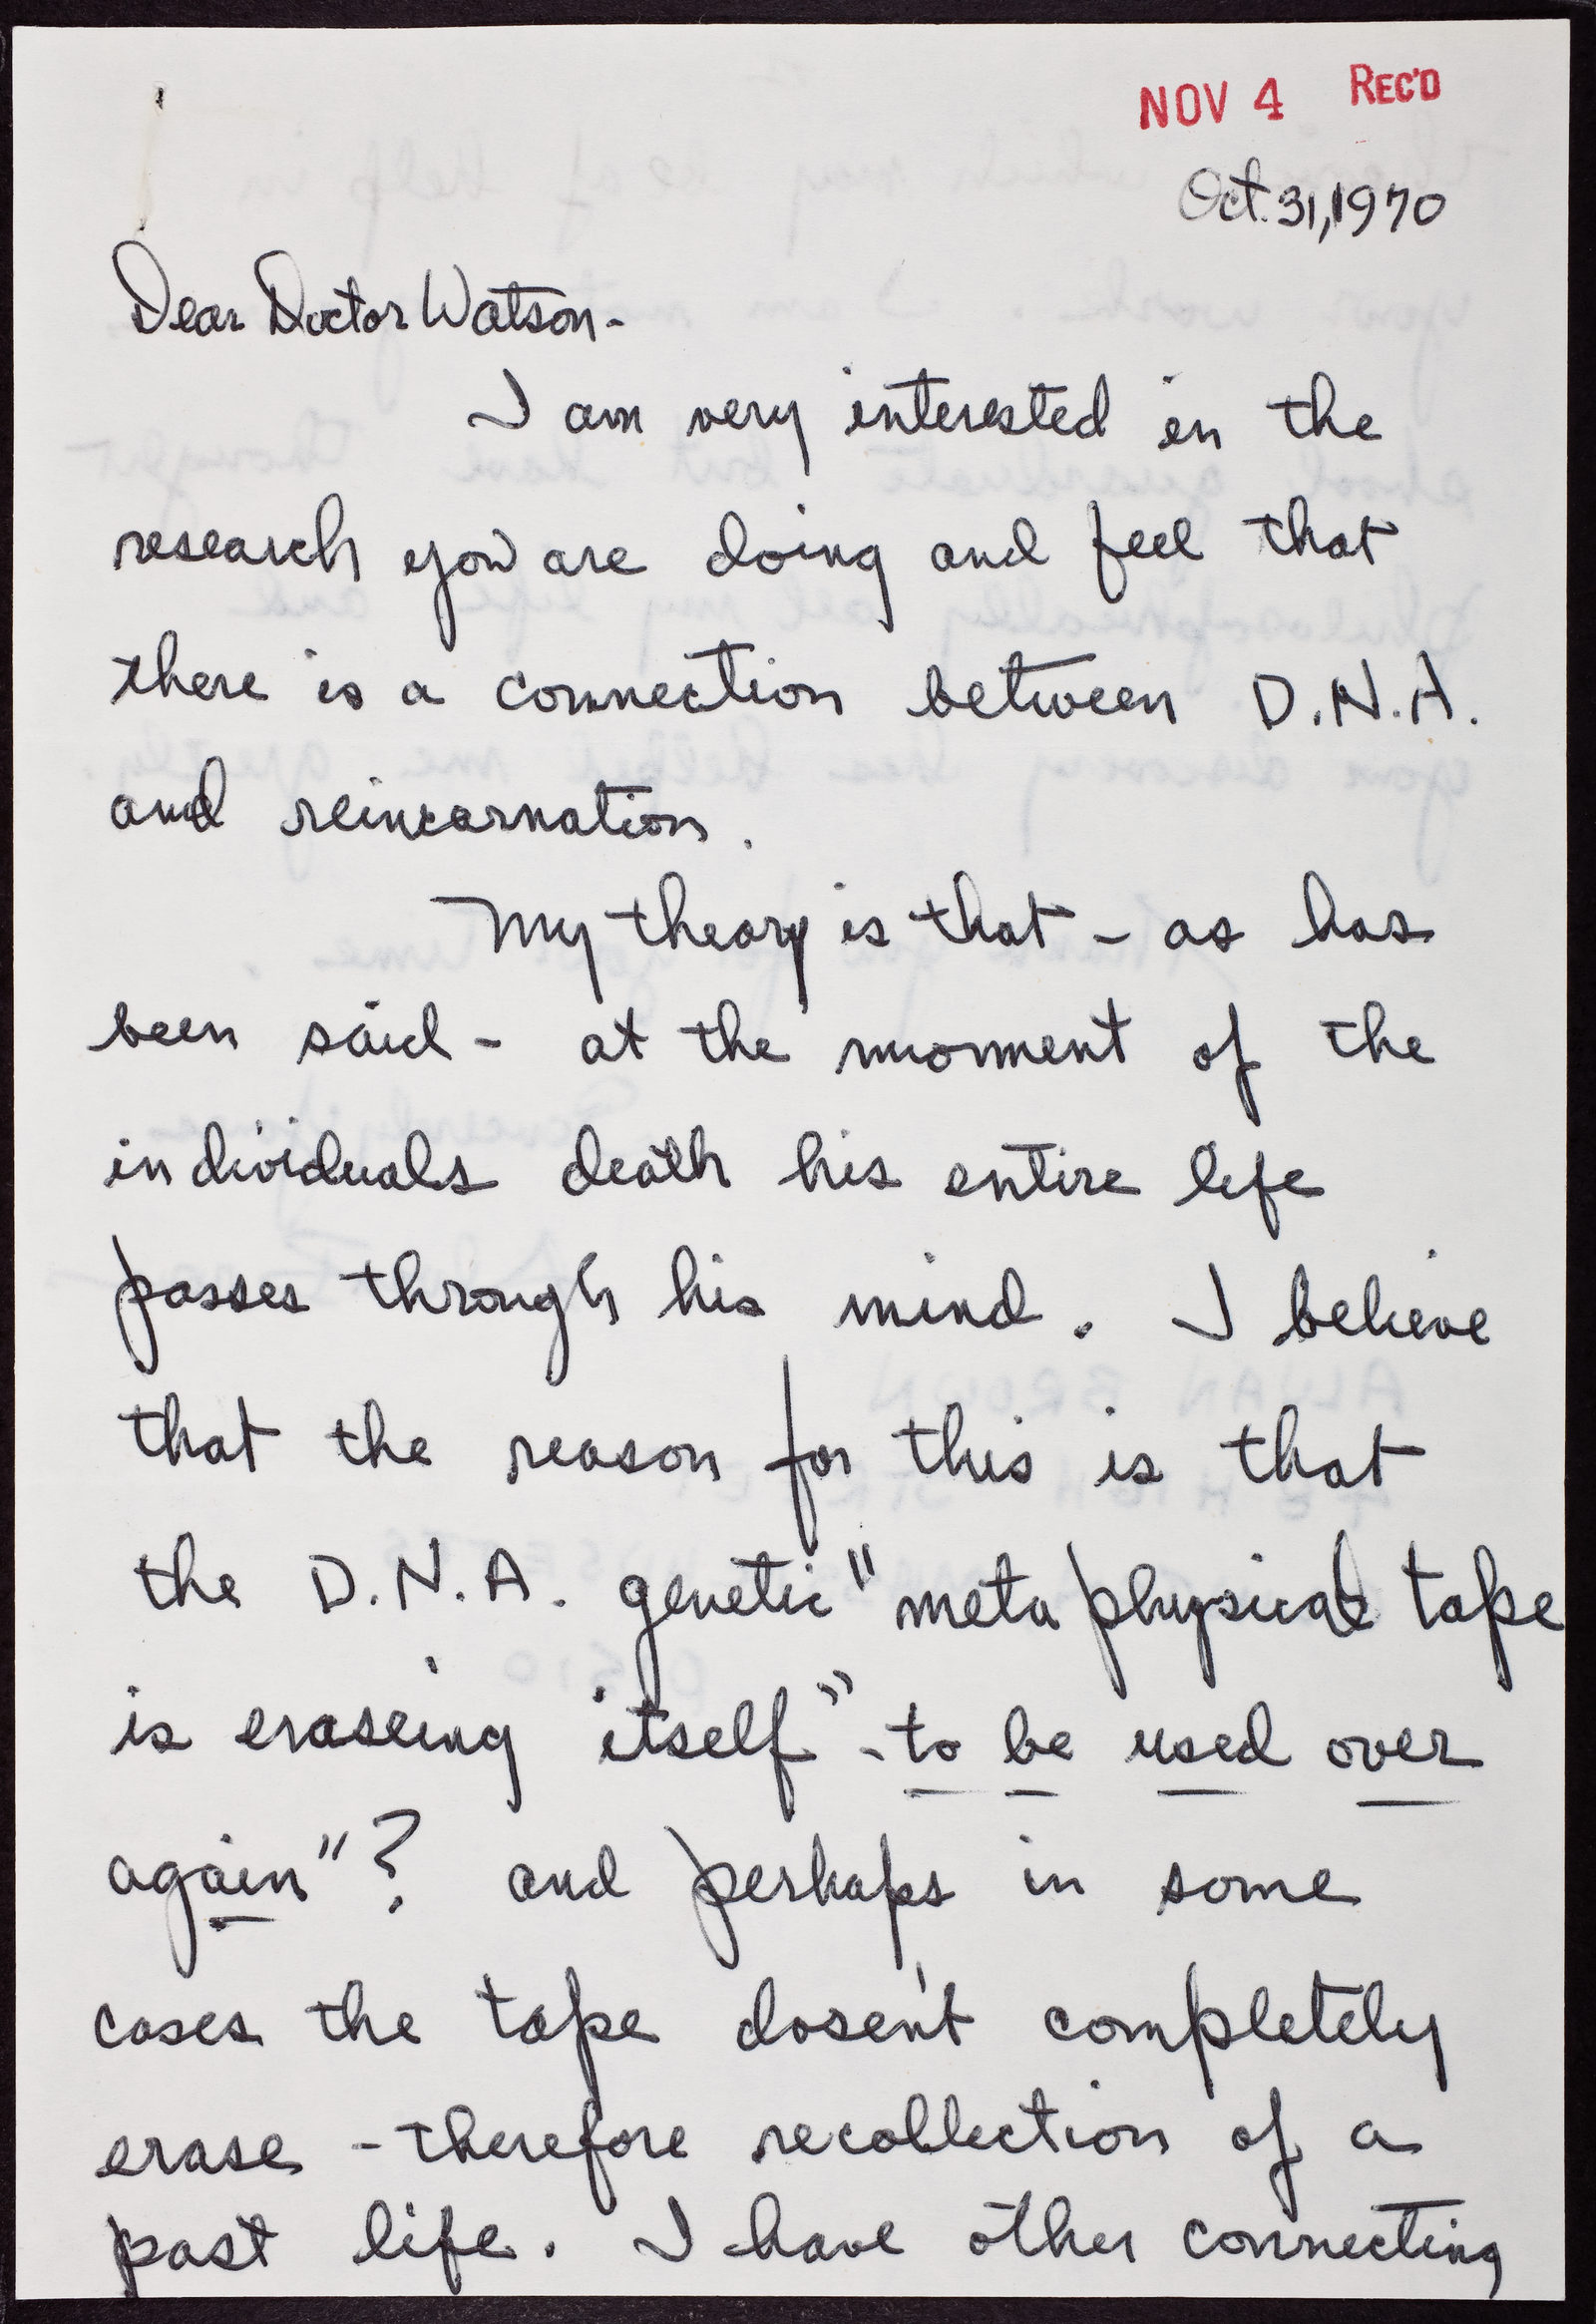 NOV 4 REC'D
Oct. 31, 1970
Dear Doctor Watson-
I am very interested in the
research you are doing and feel that
there is a connection between D.N.A.
and reincarnation.
My theory is that - as has
been said - at the moment of the
individuals death his entire life
passes through his mind. I believe
that the reason for this is that
the D.N.A. genetic "meta physical tape
is eraseing itself" - to be used over
again"? and perhaps in some
cases the tape dosen't completely
erase - therefore recollection of a
past life. I have other connecting